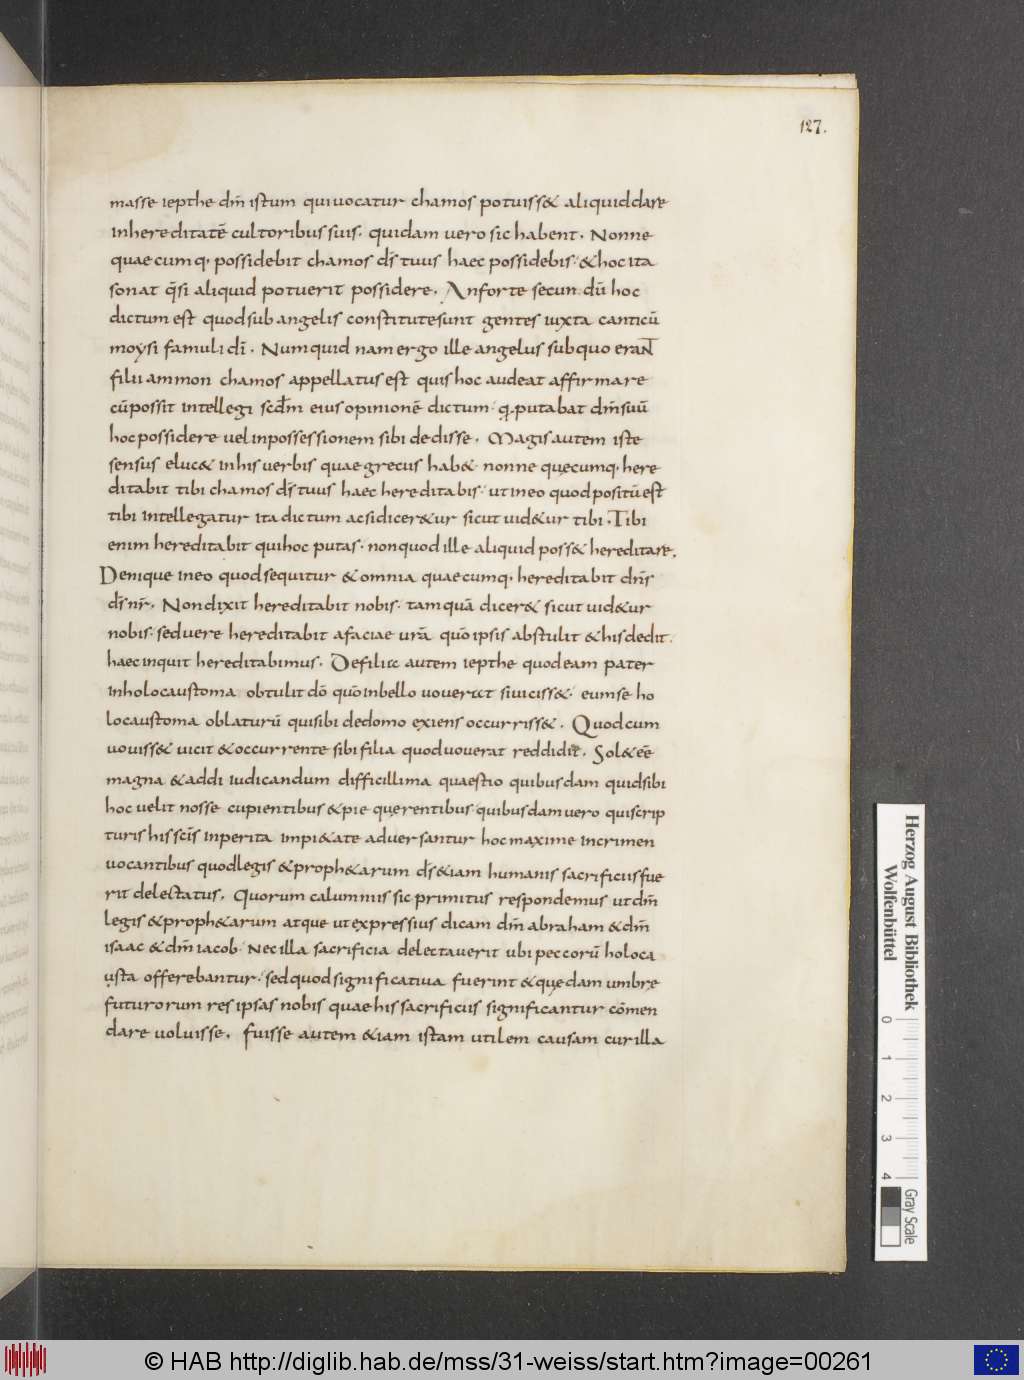 127.
masse iepthe dm̄ istum qui uocatur chamos potuiss& aliquid dare
in hereditatē cultoribus suis. quidam uero sic habent. Nonne
quaecumq; possidebit chamos ds̄ tuus haec possidebis. & hoc ita
sonat q̄si aliquid potuerit possidere. An forte secundū hoc
dictum est quod sub angelis constitute sunt gentes iuxta canticū
moysi famuli dī. Numquidnam ergo ille angelus sub quo erant
filii ammon chamos appellatus est quis hoc audeat affirmare
cū possit intellegi scdm̄ eius opinionē dictum. q putabat dm̄ suū
hoc possidere uel in possessionem sibi dedisse. Magis autem iste
sensus eluc& in his uerbis quae grecus hab& nonne quęcumq; here
ditabit tibi chamos ds̄ tuus haec hereditabis. ut in eo quod positū est
tibi intellegatur ita dictum ac si dicer&ur sicut uid&ur tibi. Tibi
enim hereditabit qui hoc putas. non quod ille aliquid poss& hereditare.
Denique in eo quod sequitur & omnia quaecumq; hereditabit dn̄s
ds̄ nr̄. Non dixit hereditabit nobis. tamquā dicer& sicut uid&ur
nobis. sed uere hereditabit a faciae urā quō ipsis abstulit & his dedit.
haec inquit hereditabimus. De filia autem iepthe quod eam pater
in holocaustoma obtulit dō quō in bello uouerat si uiciss& eum se ho
locaustoma oblaturū qui sibi de domo exiens occurriss&. Quod cum
uouiss& uicit & occurrente sibi filia quod uouerat reddidit. Sol& eē
magna & ad diiudicandum difficillima quaestio quibusdam quid sibi
hoc uelit nosse cupientibus & pie quęrentibus. quibusdam uero qui scrip
turis his scīs inperita impi&ate aduersantur hoc maxime in crimen
uocantibus quod legis & proph&arum ds̄ &iam humanis sacrificiis fue
rit delectatus. Quorum calumniis sic primitus respondemus ut dm̄
legis & proph&arum atque ut expressius dicam dm̄ abraham & dm̄
isaac & dm̄ iacob. Nec illa sacrificia delectauerit ubi peccorū holoca
usta offerebantur. sed quod significatiua fuerint & quędam umbre
futurorum res ipsas nobis quae his sacrificiis significantur cōmen
dare uoluisse. Fuisse autem &iam istam utilem causam cur illa
Herzog August Bibliothek
Wolfenbüttel
0 1 2 3 4
Gray Scale
© HAB http://diglib.hab.de/mss/31-weiss/start.htm?image=00261